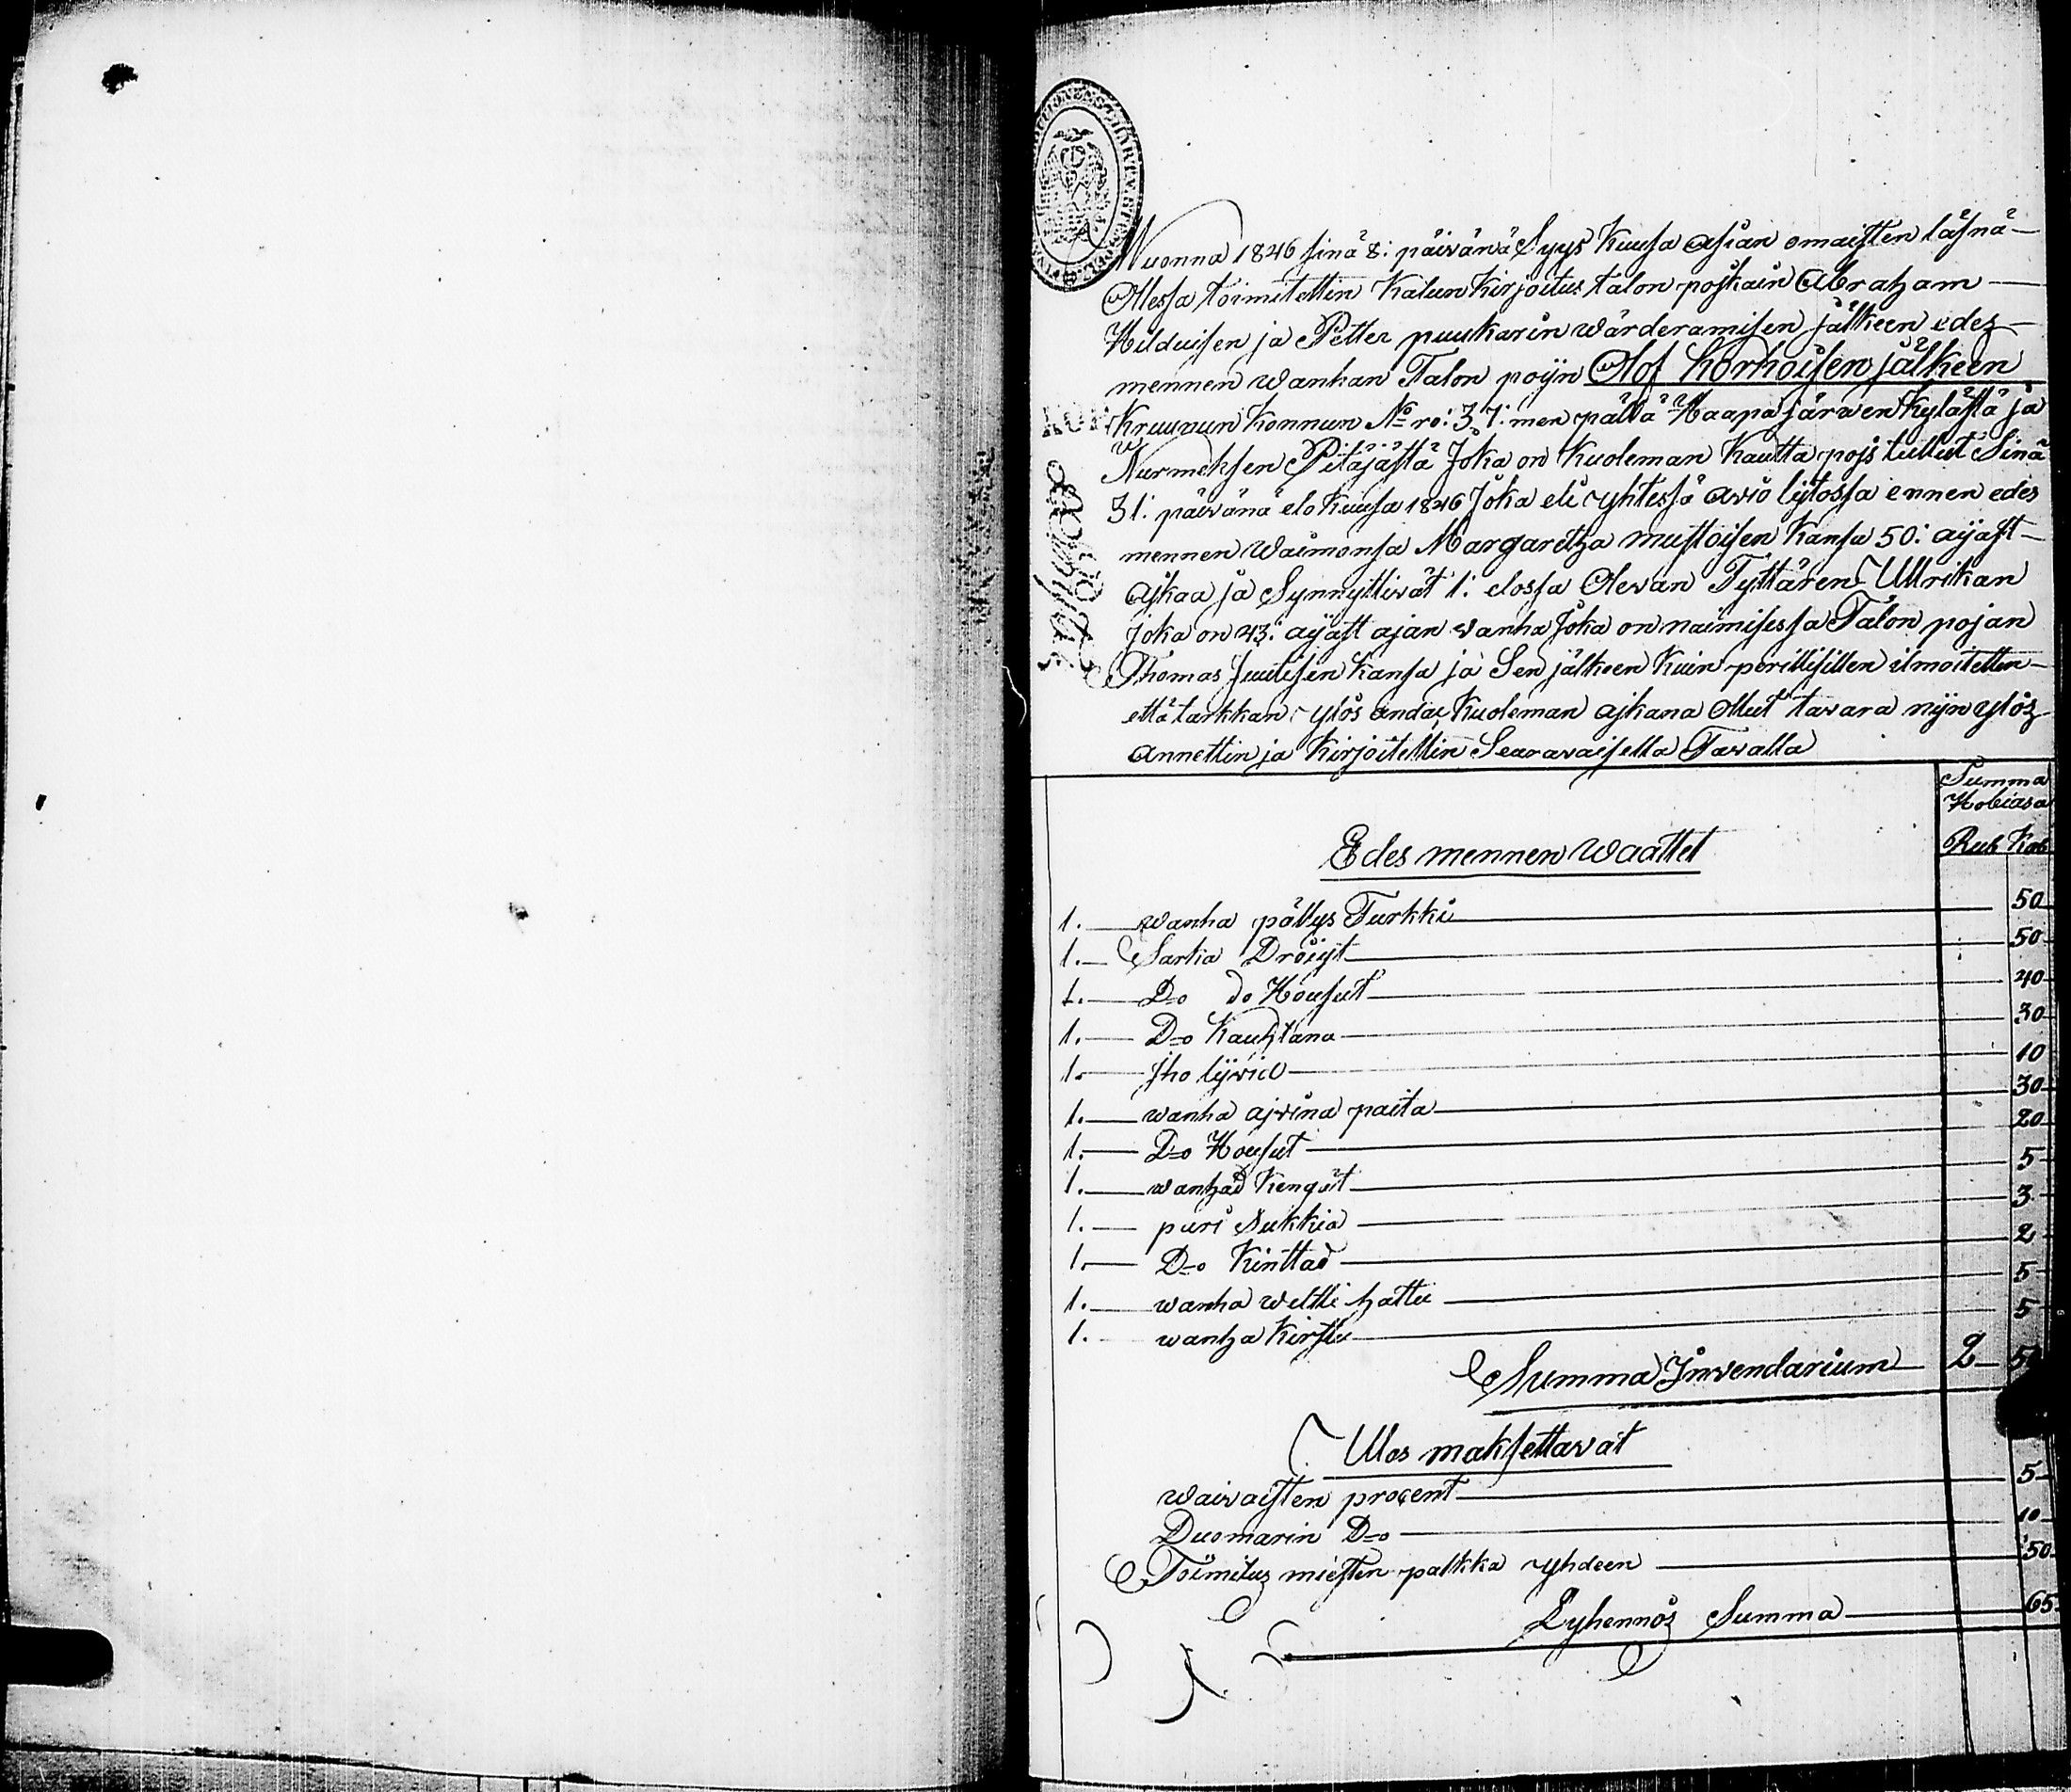 Wuonna 1846 sinä 8: päivänä Syys Kuusa asian omaisten läsnä-
Olessa toimitettin Kalun Kirjoitus talon poikain Abraham
Hilduisen ja Petter puukarin wärderamisen jälkeen edez-
mennen wanhan Talon poijn Olof Korhoisen jälkeen
Kruunun Konnun No ro: 37: men päldä Haapa järwen Kylästä ja
Nurmeksen Pitäjästä Joka on Kuoleman Kautta pojs tullut Sinä
31: päivänä elo Kuusa 1846 Joka eli yhtessä avio lijtossa ennen edes
mennen Waimonsa Margaretha mustoisen Kansa 50: aijast-
ajkaa ja Synnyttivät 1: elossa Olevan Tyttären Ullrikan
Joka on 43: aijast ajan vanha Joka on naimisessa Talon pojan
Thomas Juutisen Kansa ja Sen jälkeen Kuin perillisillen ilmoitettin
että tarkkan ylös andaa Kuoleman ajkana ollut tavara nijn ylöz
annettin ja Kirjoitettin Seuravaisella Tavalla
Summa
Hobiasa
Rub Kob
Edes mennen waattet
1. wanha pällys Turkki 50
1. Sarka Dröijt 50
1. D=o do Housut 40
1. D=o Kauhtana 30
1. Jho lijvid 10
1. wanha ajvina paita 30
1. D=o Housut 20
1. wanhad Kengät 5
1. pari Sukkia 3
1. D=o Kinttad 2
1. wanha weltti hattu 5
1. wanha Kirstu 5
Summa Inwendarium 2 50
Ulos maksettavat
waivaisten procent 5
Duomarin D=o 10
Toimituz miesten palkka yhdeen 50
Lyhennöz Summa 65